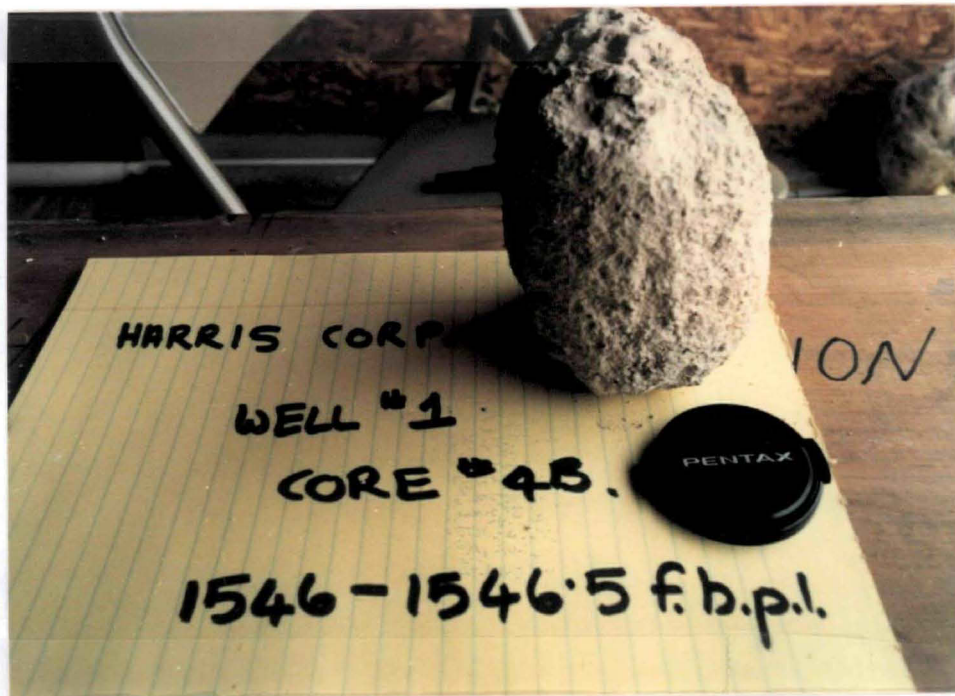 HARRIS CORP
ION
WELL #1
CORE #4B.
PENTAX
1546-1546.5 f.b.p.l.